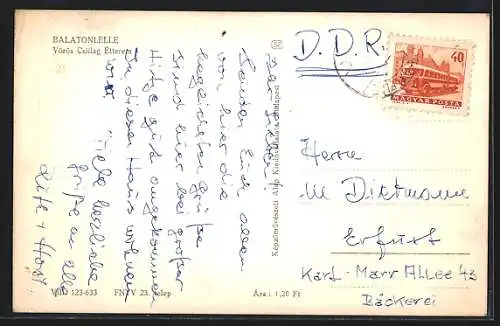 BALATONLELLE
Vörös Csillag Étterem
Ihr Lieben!
Senden Euch allen
von hier die
herzlichsten Grüße
Sind hier bei großer
Hitze gut angekommen
In diesem Haus wohnen
wir.
Viele herzliche
Grüße an alle
Ruth + Horst
Képzőművészeti Alap Kiadóvállalata, Budapest
D.D.R.
40
MAGYAR POSTA
Herrn
M Dietmann
Erfurt
Karl-Marx Allee 43
Bäckerei
523-633 FNYV 23. telep Ára: 1,20 Ft